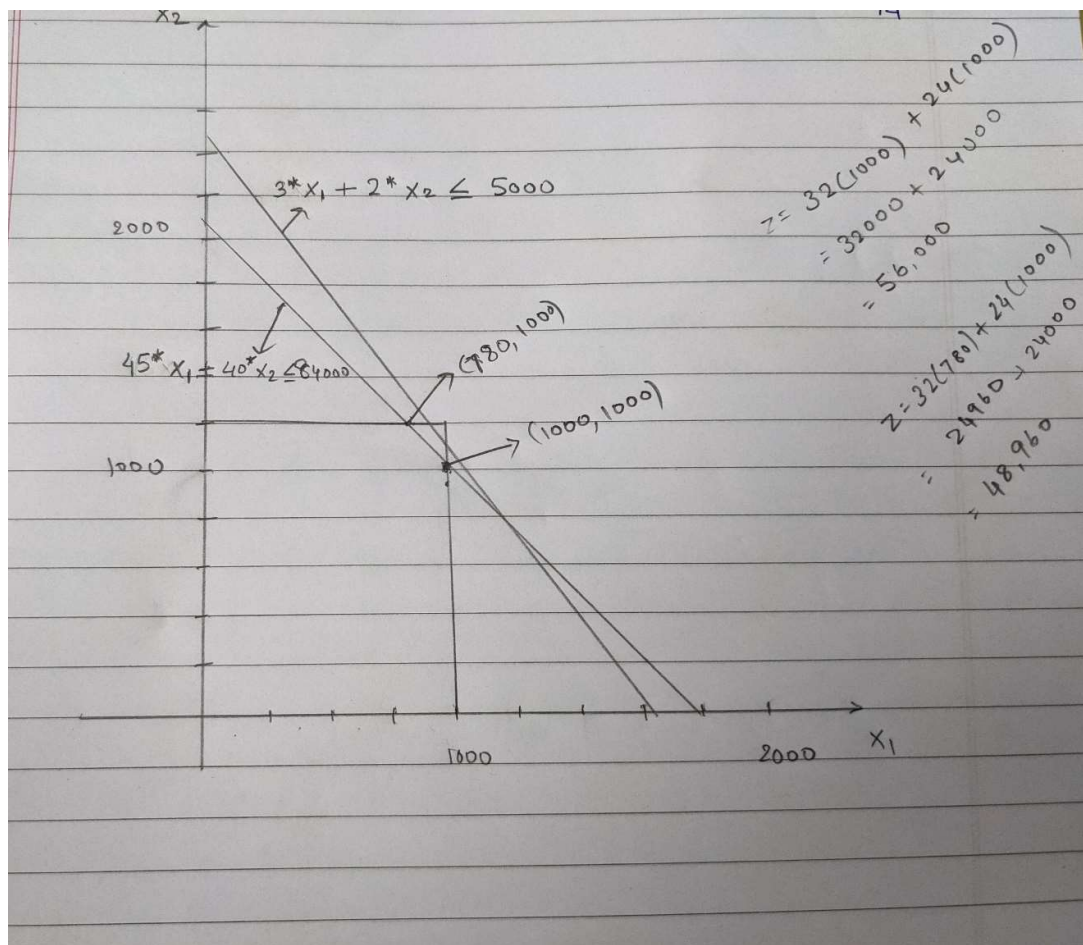 x2
3*x1 + 2*x2 ≤ 5000
2000
45*x1 + 40*x2 ≤ 84000
(780, 1000)
(1000, 1000)
1000
1000
2000
x1
z = 32(1000) + 24(1000)
= 32000 + 24000
= 56,000
z = 32(780) + 24(1000)
= 24960 + 24000
= 48,960